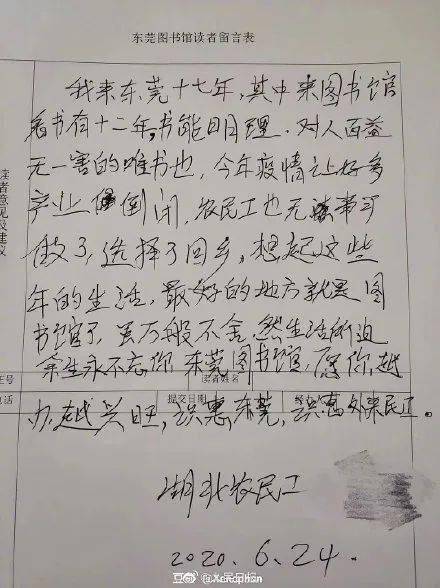 东莞图书馆读者留言表
我来东莞十七年，其中来图书馆
看书有十二年，书能明理，对人百益
无一害的唯书也，今年疫情让好多
产业倒闭，农民工也无事可
做了，选择了回乡，想起这些
年的生活，最好的地方就是图
书馆了，虽万般不舍，然生活所迫
余生永不忘你，东莞图书馆，愿你越
办越兴旺，识惠东莞，识惠外来民工。
读者意见及建议
证号
读者姓名
电话
提交日期
湖北农民工
2020.6.24.